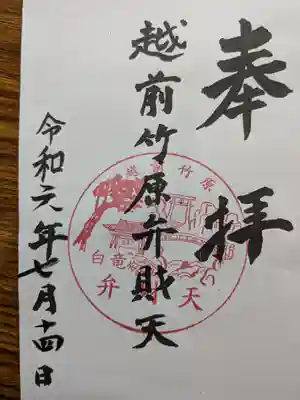 奉拝
越前竹原弁財天
令和元年七月十四日
竹原
白竜
弁
天